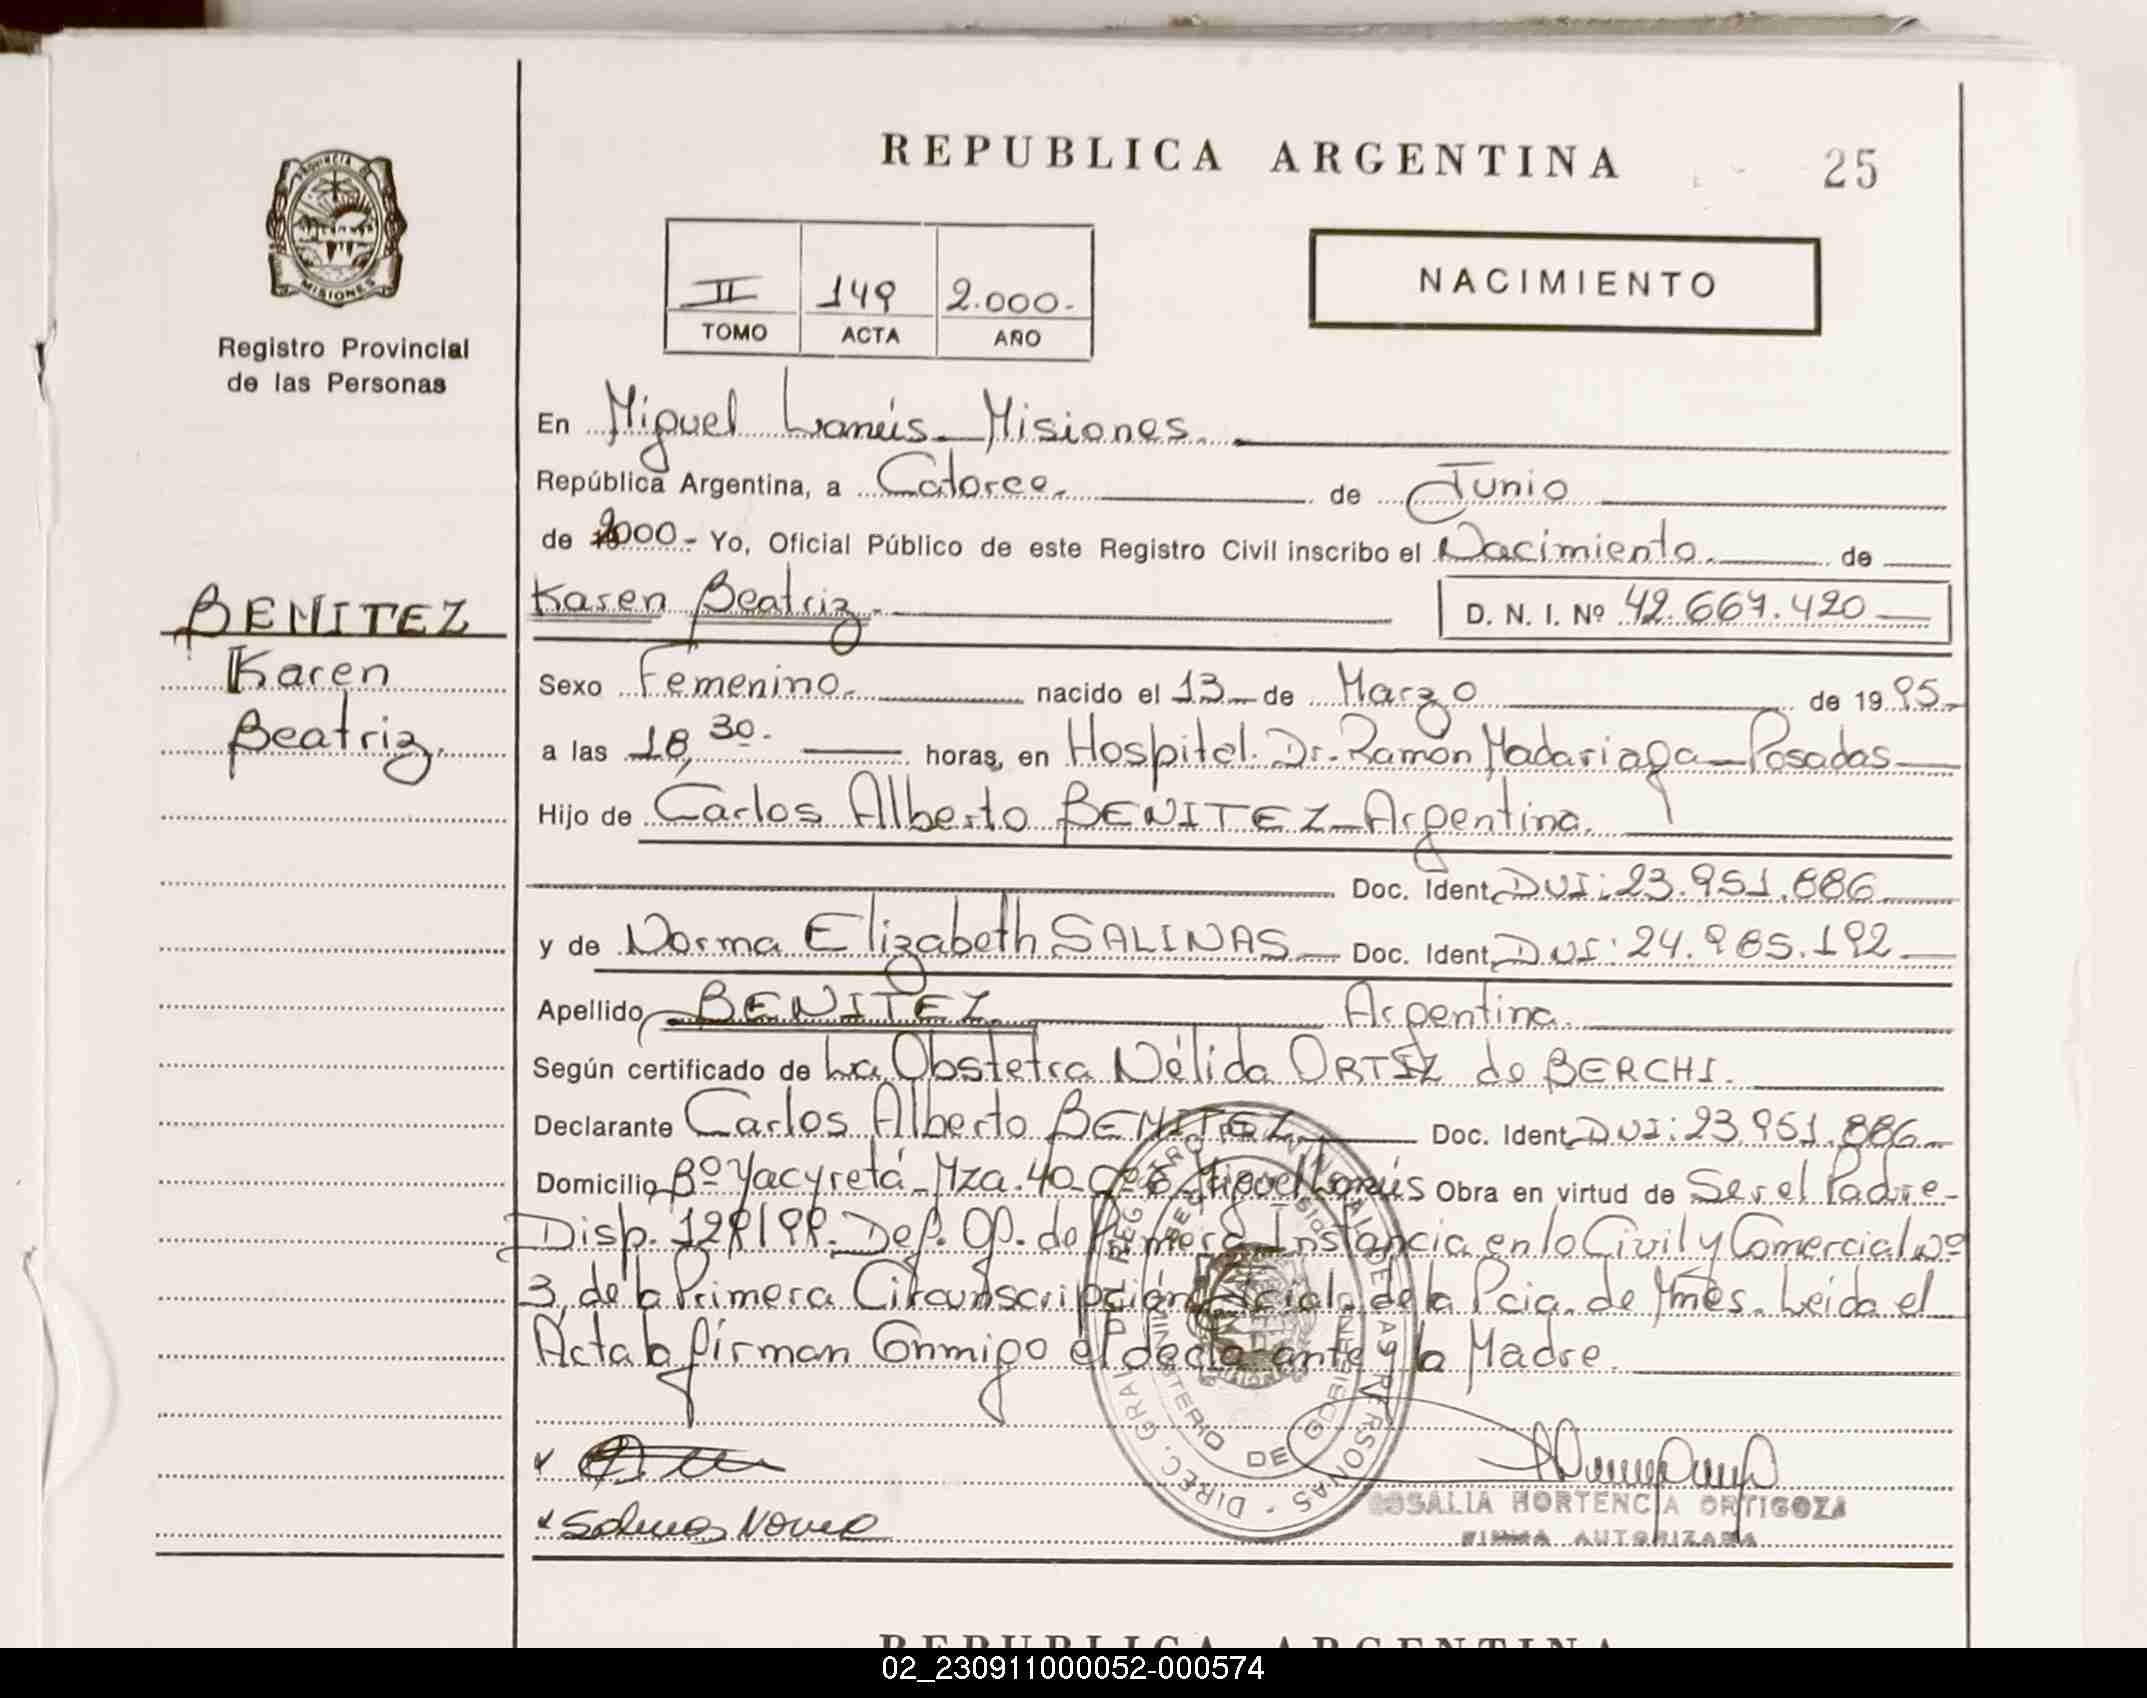 REPUBLICA ARGENTINA
25
PROVINCIA DE
MISIONES
Registro Provincial
de las Personas
II 149 2.000.-
TOMO ACTA AÑO
NACIMIENTO
En Miguel Lanús - Misiones.
República Argentina, a Catorce. de Junio
de 2000.- Yo, Oficial Público de este Registro Civil inscribo el Nacimiento. de
BENITEZ
Karen
Beatriz.
Karen Beatriz. D. N. I. Nº 42.667.420
Sexo Femenino. nacido el 13 de Marzo de 19 95.
a las 18,30. horas, en Hospital. Dr. Ramon Madariaga - Posadas
Hijo de Carlos Alberto BENITEZ - Argentina.
Doc. Ident. DNI: 23.951.886
y de Norma Elizabeth SALINAS Doc. Ident. DNI: 24.985.192
Apellido BENITEZ Argentina.
Según certificado de La Obstetra Nélida ORTIZ de BERCHI.
Declarante Carlos Alberto BENITEZ Doc. Ident. DNI: 23.951.886
Domicilio Bº Yacyretá - Mza. 40 Miguel Lanús Obra en virtud de Ser el Padre -
Disp. 129/99. Def. Of. de Primera Instancia en lo Civil y Comercial Nº
3, de la Primera Circunscripción Judicial de la Pcia. de Mnes. Leida el
Acta la firman Conmigo el declarante y la Madre.
DIREC. GRAL. DEL REGISTRO PROVINCIAL DE LAS PERSONAS
MINISTERIO DE GOBIERNO
Salinas Norma
ROSALIA HORTENCIA ORTIGOZA
FIRMA AUTORIZADA
REPUBLICA ARGENTINA
02_230911000052-000574